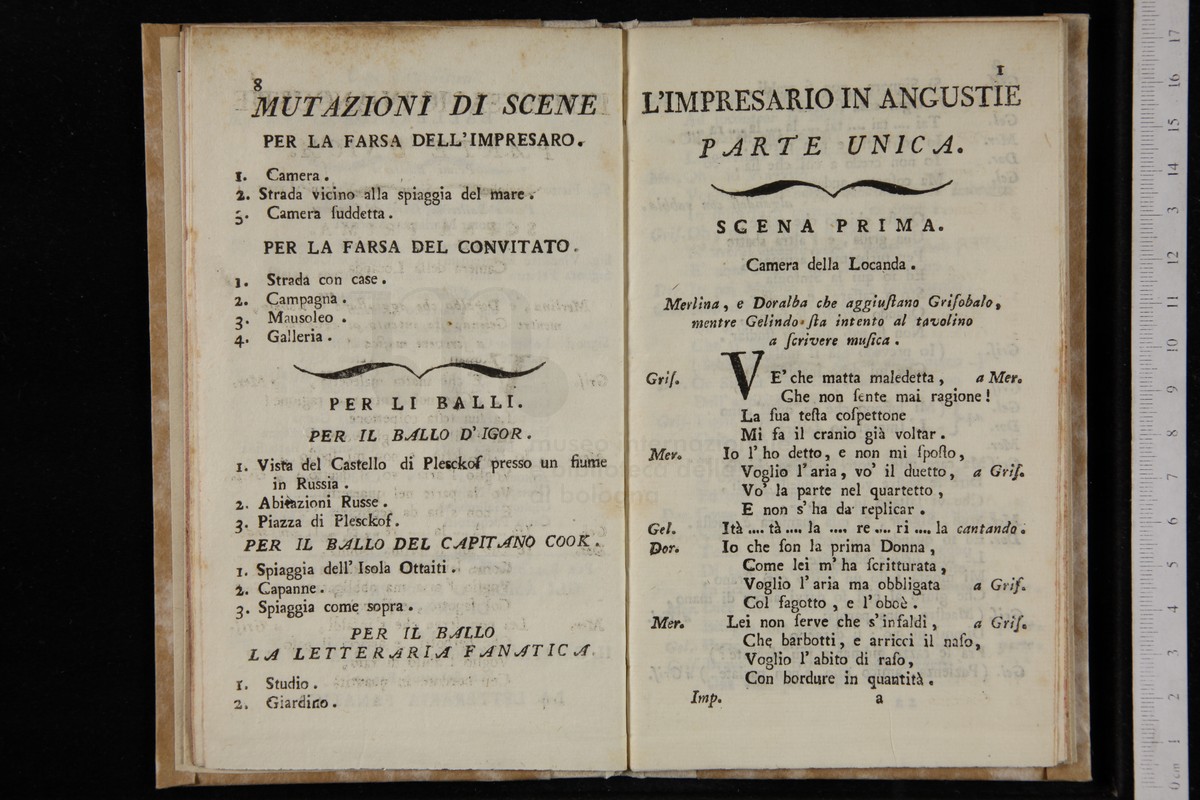 8
MUTAZIONI DI SCENE
PER LA FARSA DELL'IMPRESARO.
1. Camera .
2. Strada vicino alla spiaggia del mare .
3. Camera ſuddetta .
PER LA FARSA DEL CONVITATO.
1. Strada con case .
2. Campagna .
3. Mausoleo .
4. Galleria .
PER LI BALLI.
PER IL BALLO D'IGOR .
1. Vista del Castello di Plesckof presso un fiume
in Russia .
2. Abitazioni Russe .
3. Piazza di Plesckof .
PER IL BALLO DEL CAPITANO COOK .
1. Spiaggia dell' Isola Ottaiti .
2. Capanne .
3. Spiaggia come sopra .
PER IL BALLO
LA LETTERARIA FANATICA.
1. Studio .
2. Giardino .
1
L'IMPRESARIO IN ANGUSTIE
PARTE UNICA.
SCENA PRIMA.
Camera della Locanda .
Merlina , e Doralba che aggiuſtano Griſobalo ,
mentre Gelindo ſta intento al tavolino
a ſcrivere muſica .
Griſ. VE' che matta maledetta , a Mer.
Che non ſente mai ragione !
La ſua teſta coſpettone
Mi fa il cranio già voltar .
Mer. Io l' ho detto , e non mi ſpoſto ,
Voglio l' aria , vo' il duetto , a Griſ.
Vo' la parte nel quartetto ,
E non s' ha da replicar .
Gel. Ità .... tà .... la .... re .... ri .... la cantando .
Dor. Io che ſon la prima Donna ,
Come lei m' ha ſcritturata ,
Voglio l' aria ma obbligata a Griſ.
Col fagotto , e l' oboè .
Mer. Lei non ſerve che s' infaldi , a Griſ.
Che barbotti , e arricci il naſo ,
Voglio l' abito di raſo ,
Con bordure in quantità .
Imp. a
museo internazionale
biblioteca della
di bologna
0 cm 1 2 3 4 5 6 7 8 9 10 11 12 13 14 15 16 17